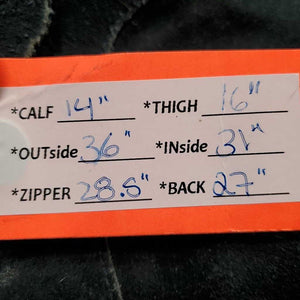 *CALF 14" *THIGH 16"
*OUTside 36" *INside 31"
*ZIPPER 28.5" *BACK 27"